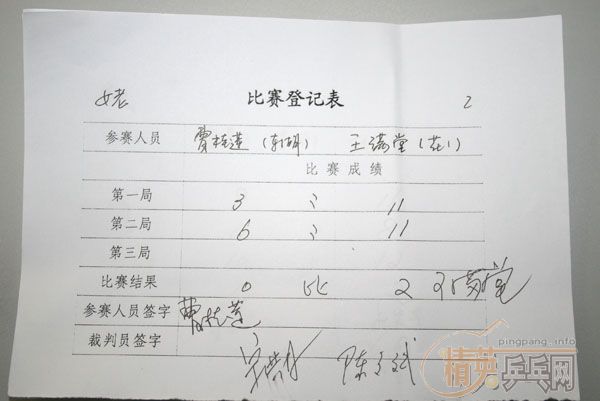 姥 比赛登记表 2
参赛人员 曹桂莲(东明) 王满堂(花1)
比赛成绩
第一局 3 : 11
第二局 6 : 11
第三局
比赛结果 0 比 2 王满堂
参赛人员签字 曹桂莲
裁判员签字
pingpang.info
精英乒乓网